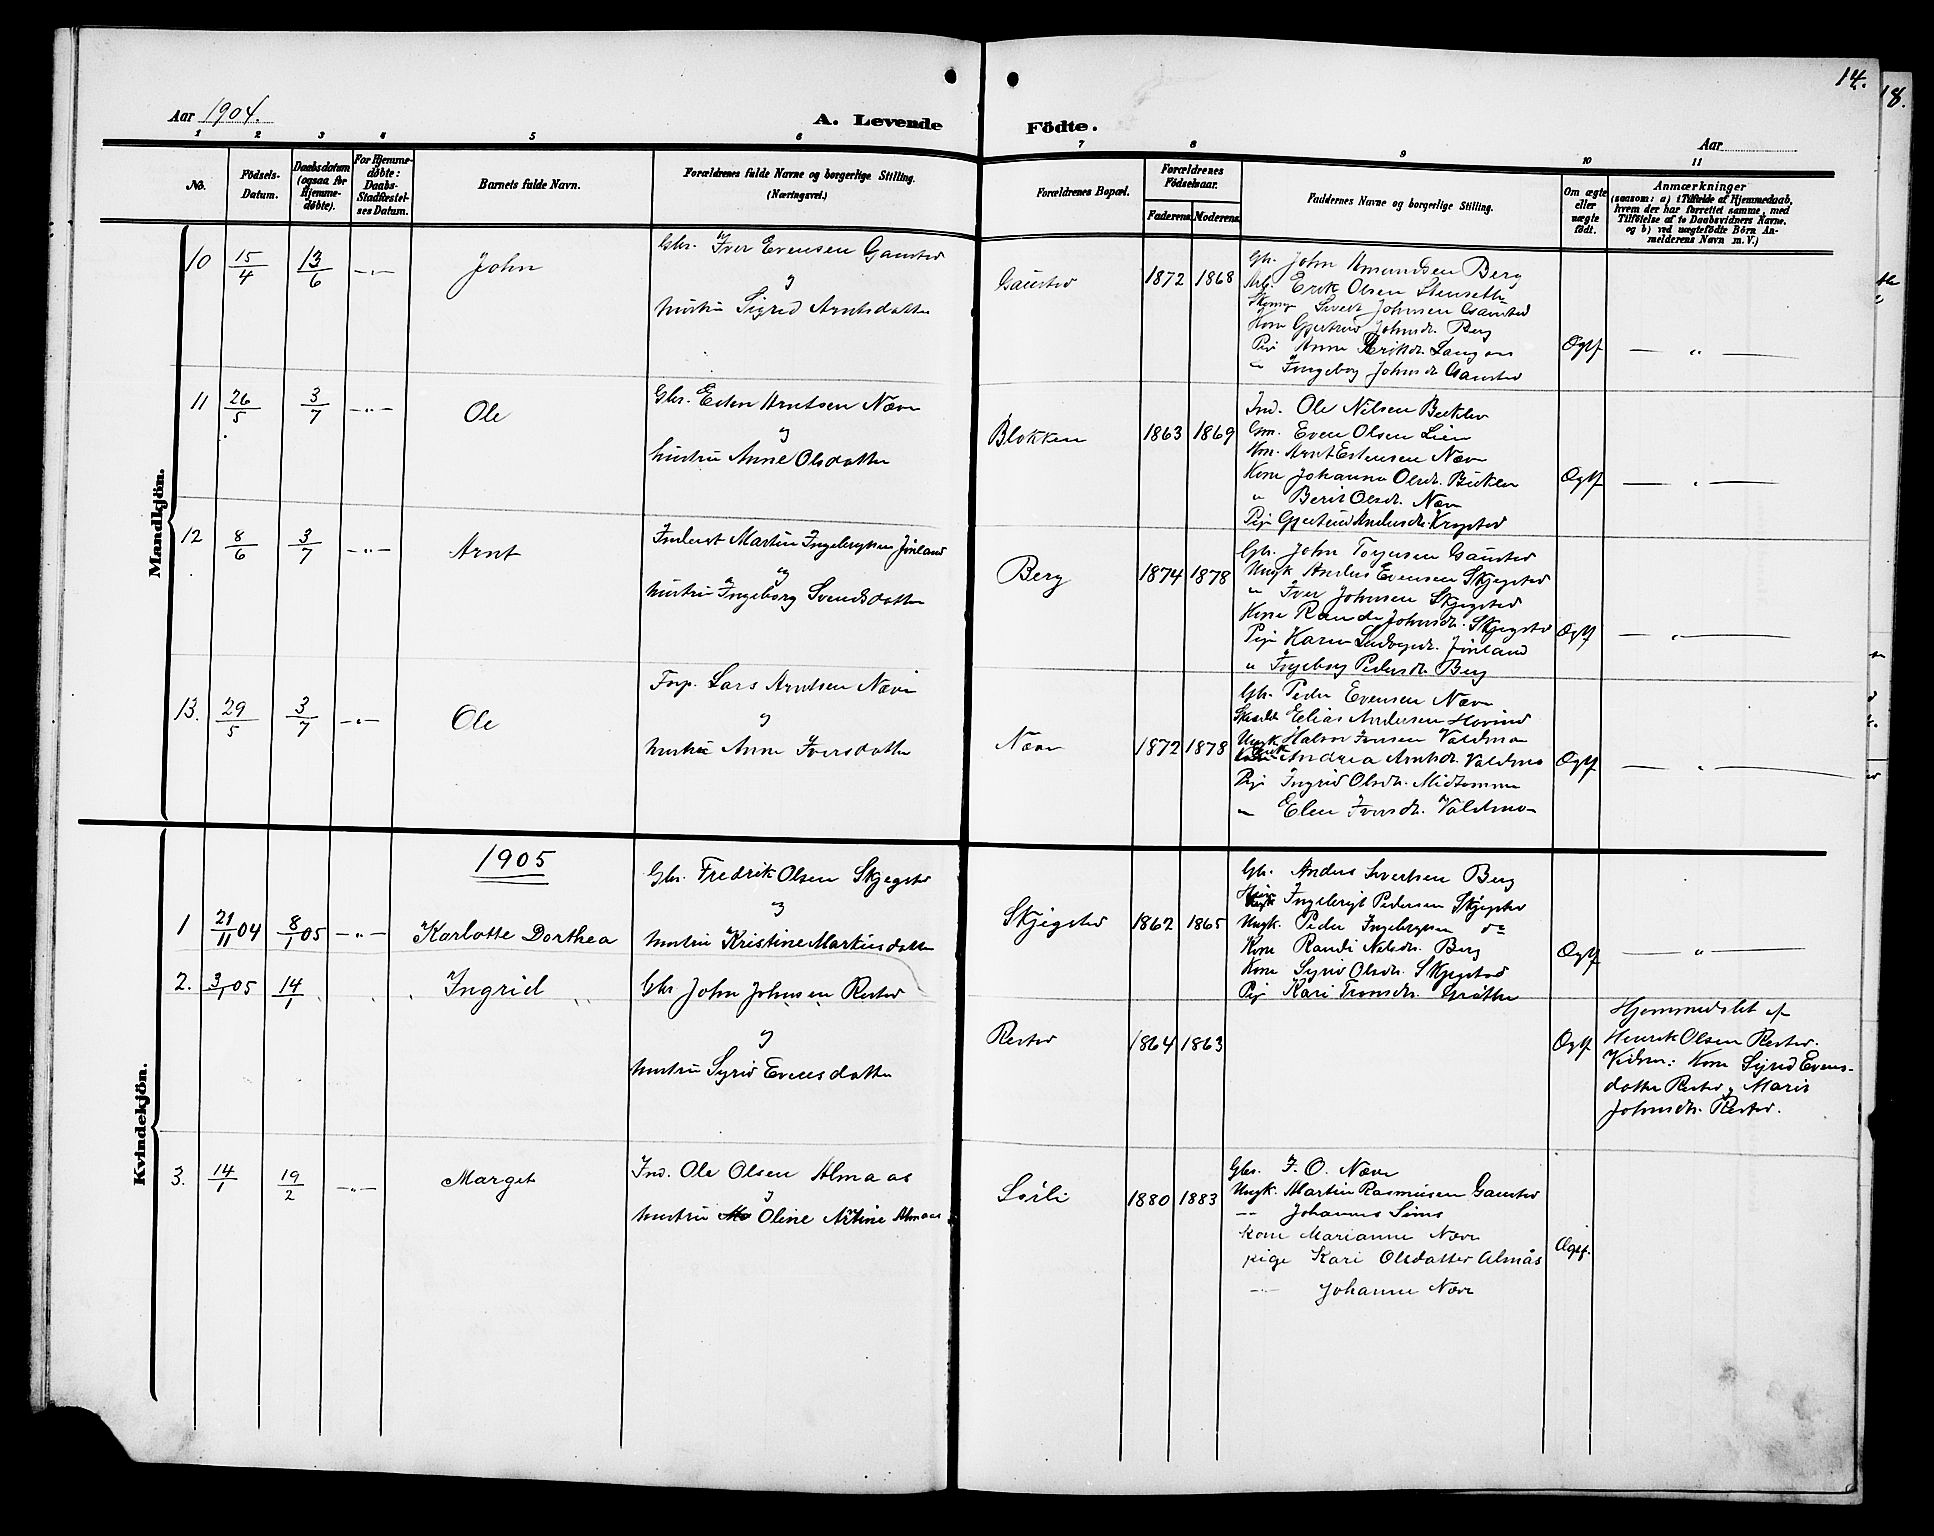 14.
18.
Aar 1904.
A. Levende Födte.
Aar
1 2 3 4 5 6 7 8 9 10 11
No.
Födsels-Datum.
Daabsdatum (ogsaa for Hjemme-döbte).
For Hjemme-döbte: Daabs-Stadfæstelses Datum.
Barnets fulde Navn.
Forældrenes fulde Navne og borgerlige Stilling. (Næringsvei.)
Forældrenes Bopæl.
Forældrenes Födselsaar.
Faderens. Moderens.
Faddernes Navne og borgerlige Stilling.
Om ægte eller uægte födt.
Anmærkninger
(saasom: a) i Tilfælde af Hjemmedaab, hvem der har forrettet samme, med Tilföielse af to Daabsvidners Navne. og b) ved uægtefödte Börn Anmelderens Navn m. V.)
Mandkjön.
10 15/4 13/6 -"- John
Gbr. Iver Evensen Gaustad
og
hustru Sigrid Arntsdatter
Gaustad 1872 1868
Gbr. John Amundsen Berg
Arb. Erik Olsen Stenseth
Sivert Johnsen Gaustad
Kone Gjertrud Johnsdr. Berg
Pige Anne Eriksdr.
" Ingeborg Johnsdr. Gaustad
Ægtf — " —
11 26/5 3/7 -"- Ole
Gbr. Esten Arntsen Næve
og
hustru Anne Olsdatter
Blokken 1863 1869
Ind. Ole Nilsen
Gm. Even Olsen Lien
Arnt Estensen Næve
Kone Johanna Olsdr.
" Berit Olsdr. Næve
Pige Gjertrud Andersdr.
Ægtf — " —
12 8/6 3/7 -"- Arnt
Inderst Martin Ingebrigtsen Jönland
og
hustru Ingeborg Svendsdatter
Berg 1874 1878
Gbr. John Gaustad
Ungk. Anders Evensen Skjegstad
" Iver Johnsen Skjegstad
Kone Randi Johnsdr. Skjegstad
Pige Karen Jönland
" Ingeborg Pedersdr. Berg
Ægtf — " —
13. 29/5 3/7 -"- Ole
Forp. Lars Arntsen Næve
og
hustru Anne Iversdatter
Næve 1872 1878
Gbr. Peder Evensen Næve
Elias Andersen Hovind
Ungk. Halvor Jensen Valdmo
Andrea Arntsdr. Valdmo
Pige Ingrid Olsdr. Midtømme
" Elen Iversdr. Valdmo
Ægtf — " —
Kvindekjön.
1905
1 21/11 04 8/1 05 -"- Karlotte Dorthea
Gbr. Fredrik Olsen Skjegstad
og
hustru Kristine Martinsdatter
Skjegstad 1862 1865
Gbr. Anders Sivertsen Berg
Ingebrigt Pedersen Skjegstad
Ungk. Peder Ingebrigtsen do
Kone Randi Nilsdr. Berg
Kone Sigrid Olsdr. Skjegstad
Pige Kari
Ægtf — " —
2. 3/1 05 14/1 " " Ingrid
Gbr John Johnsen Rested
og
hustru Sigrid Evensdatter
Rested 1864 1863
Ægtf
Hjemmedöbt af
Henrik Olsen Rested.
Vidner: Kone Sigrid Evens-
datter Rested og Marit
Johnsdr. Rested.
3. 14/1 19/2 -"- Marget
Ind. Ole Olsen Almaas
og
hustru Oline Artine Almaas
Sörli 1880 1883
Gbr. I. O. Næve
Ungk. Martin Rasmusen Gaustad
-"- Johannes Sims
Kone Marianne Næve
pige Kari Olsdatter Almås
-"- Johanne Næve
Ægtf.